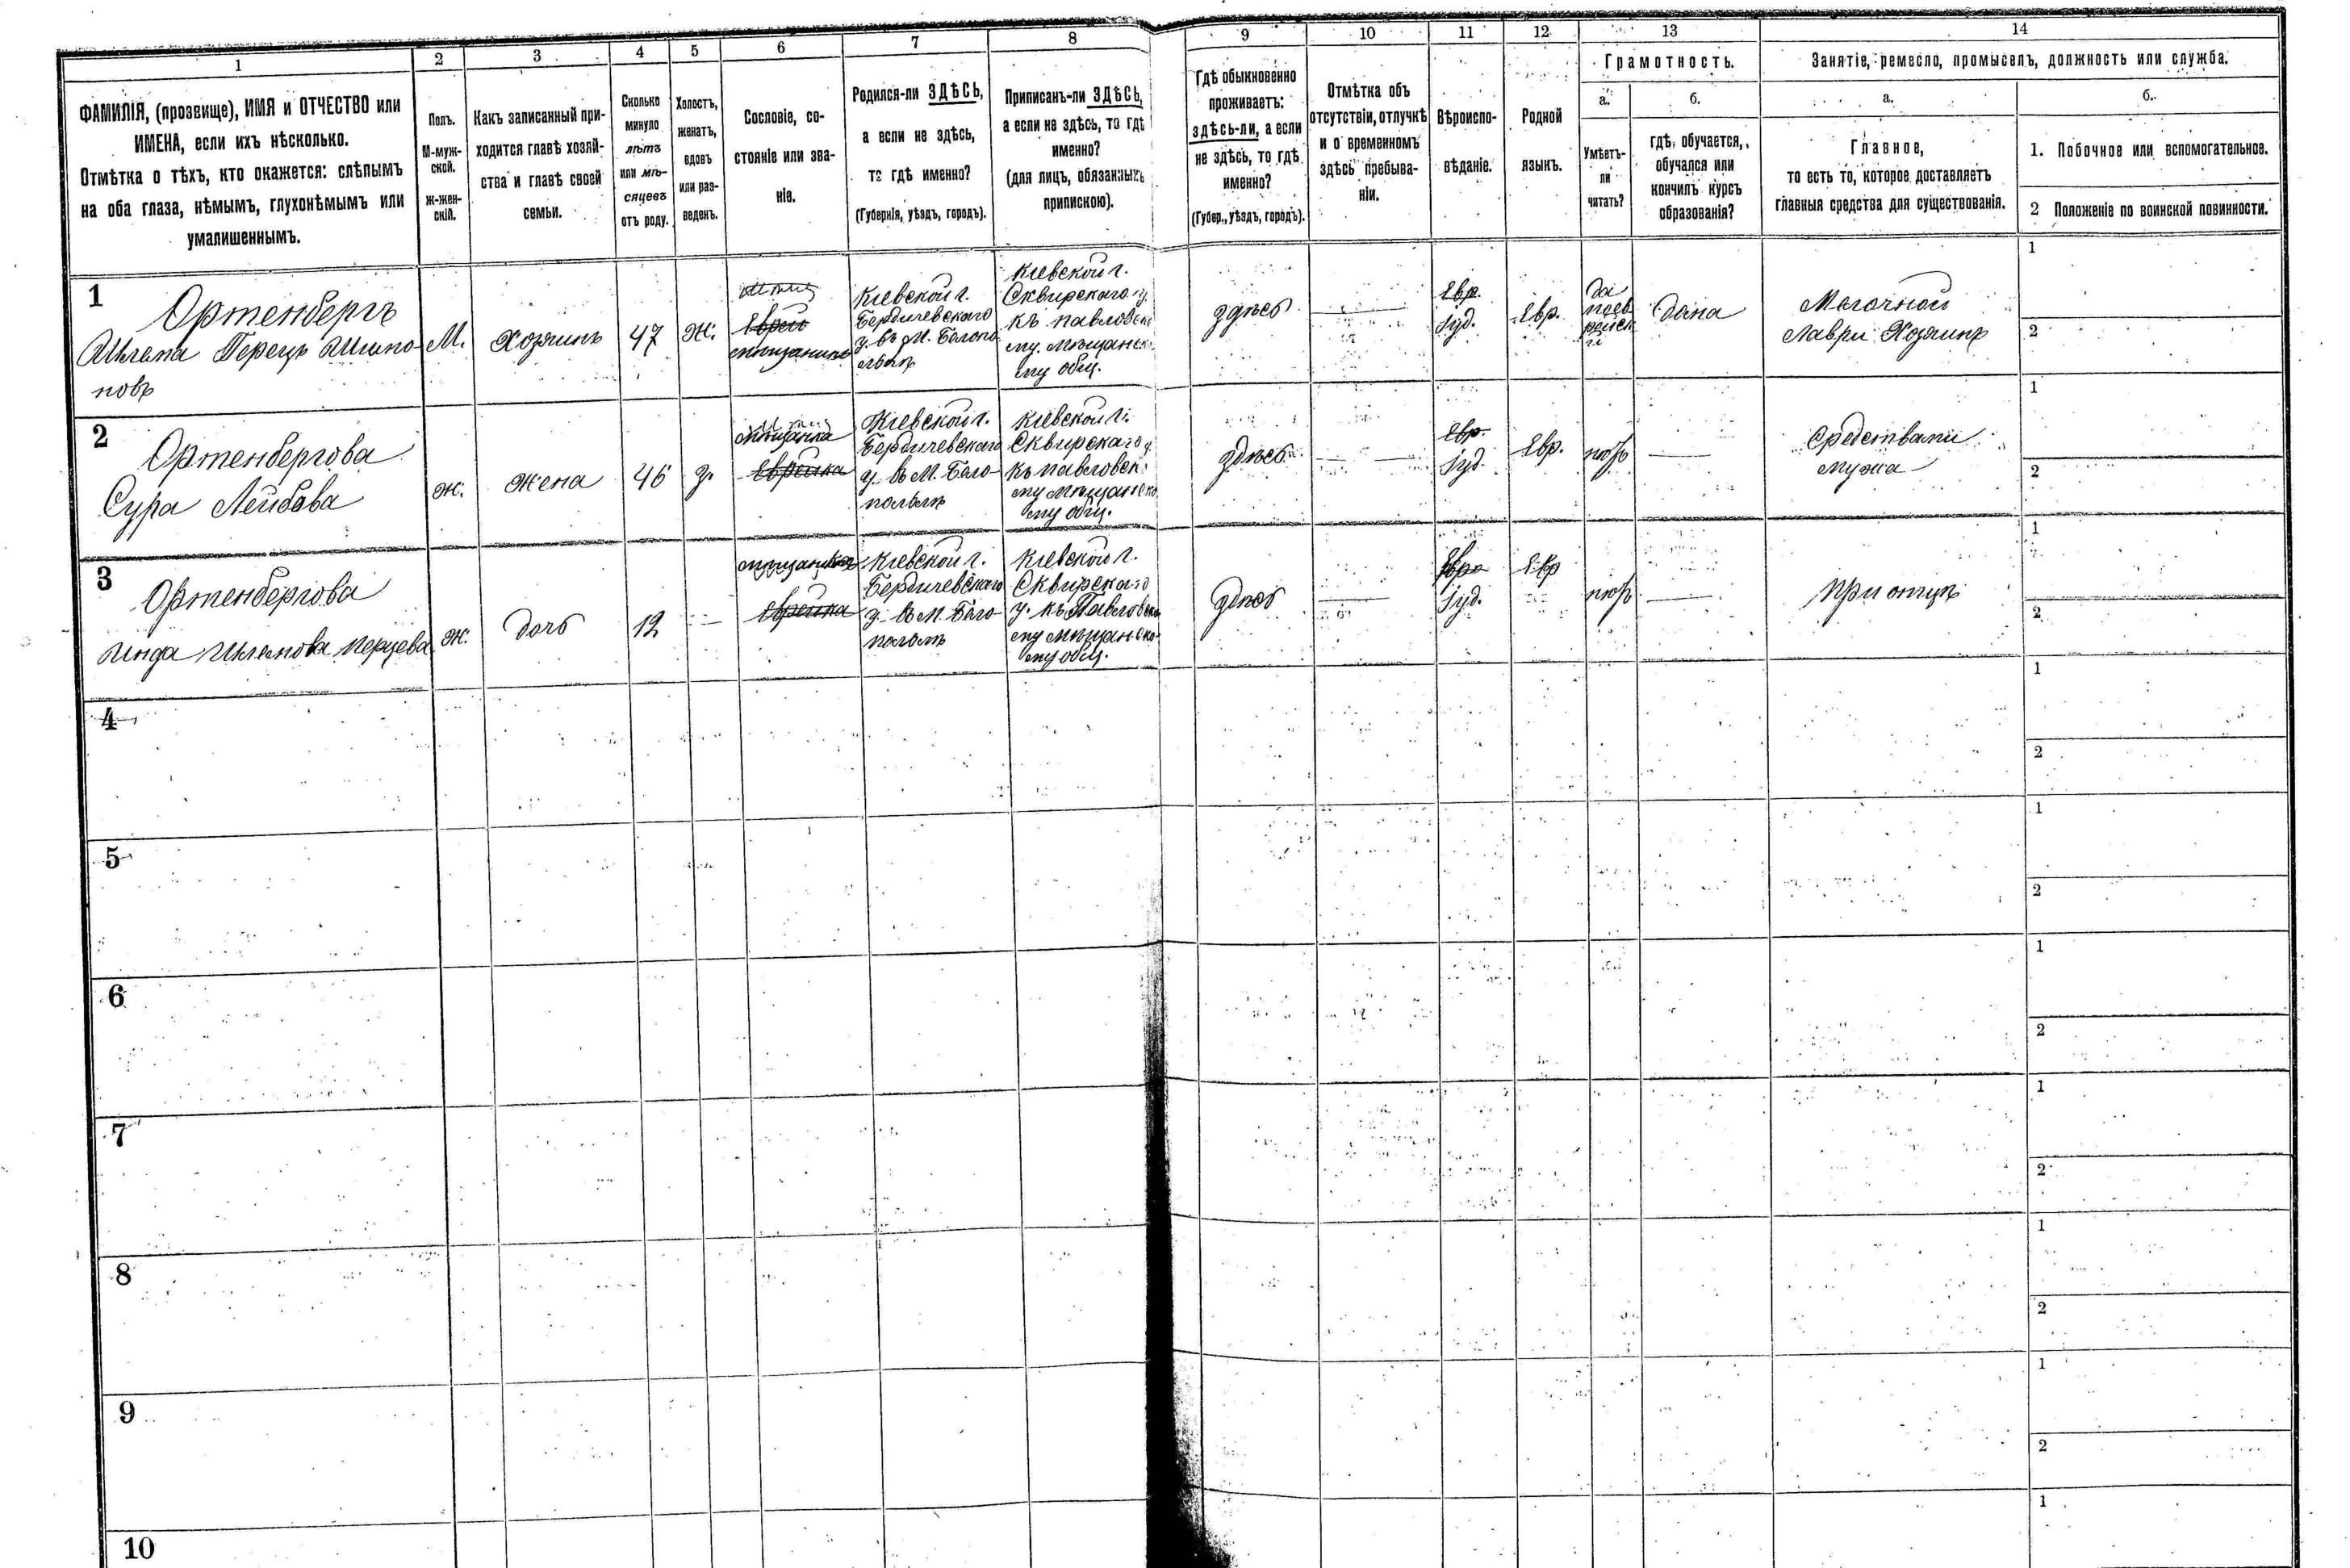 1
2
3
4
5
6
7
8
9
10
11
12
13
14
ФАМИЛІЯ, (прозвище), ИМЯ и ОТЧЕСТВО или
ИМЕНА, если ихъ нѣсколько.
Отмѣтка о тѣхъ, кто окажется: слѣпымъ
на оба глаза, нѣмымъ, глухонѣмымъ или
умалишеннымъ.
Полъ.
М-муж-
ской.
ж-жен-
скій.
Какъ записанный при-
ходится главѣ хозяй-
ства и главѣ своей
семьи.
Сколько
минуло
лѣтъ
или мѣ-
сяцевъ
отъ роду.
Холостъ,
женатъ,
вдовъ
или раз-
веденъ.
Сословіе, со-
стояніе или зва-
ніе.
Родился-ли ЗДѢСЬ,
а если не здѣсь,
то гдѣ именно?
(Губернія, уѣздъ, городъ).
Приписанъ-ли ЗДѢСЬ,
а если не здѣсь, то гдѣ
именно?
(для лицъ, обязанныхъ
припискою).
Гдѣ обыкновенно
проживаетъ:
здѣсь-ли, а если
не здѣсь, то гдѣ
именно?
(Губер., уѣздъ, городъ).
Отмѣтка объ
отсутствіи, отлучкѣ
и о временномъ
здѣсь пребыва-
ніи.
Вѣроиспо-
вѣданіе.
Родной
языкъ.
Грамотность.
а.
Умѣетъ-
ли
читать?
б.
гдѣ, обучается,
обучался или
кончилъ курсъ
образованія?
Занятіе, ремесло, промыселъ, должность или служба.
а.
Главное,
то есть то, которое доставляетъ
главныя средства для существованія.
б.
1. Побочное или вспомогательное.
2 Положеніе по воинской повинности.
1
Ортенбергъ
Перецъ
М.
Хозяинъ
47
Ж.
Еврей
мѣщанинъ
Кіевской г.
Бердичевскаго
у. въ М. Бѣлопо
Кіевской г.
Сквирскаго у.
къ Павловско
му мѣщанско
му общ.
здѣсь
Евр.
Іуд.
Евр.
да
поев
рейск
и
дома
Мелочной
лавки Хозяинъ
1
2
2
Ортенбергова
Сура Лейбова
Ж.
Жена
46
з.
мѣщанка
Еврейка
Кіевской г.
Бердичевскаго
у. въ М. Бѣло-
польѣ
Кіевской г.
Сквирскаго у.
къ Павловско
му мѣщанско
му общ.
здѣсь
Евр.
Іуд.
Евр.
нѣтъ
Средствами
мужа
1
2
3
Ортенбергова
Перцева
Ж.
дочь
12
мѣщанка
Еврейка
Кіевской г.
Бердичевскаго
у. въ М. Бѣло-
польѣ
Кіевской г.
Сквирскаго
у. къ Павловско
му мѣщанско-
му общ.
здѣсь
Евр.
Іуд.
Евр
нѣтъ
при отцѣ
1
2
4
1
2
5
1
2
6
1
2
7
1
2
8
1
2
9
1
2
10
1